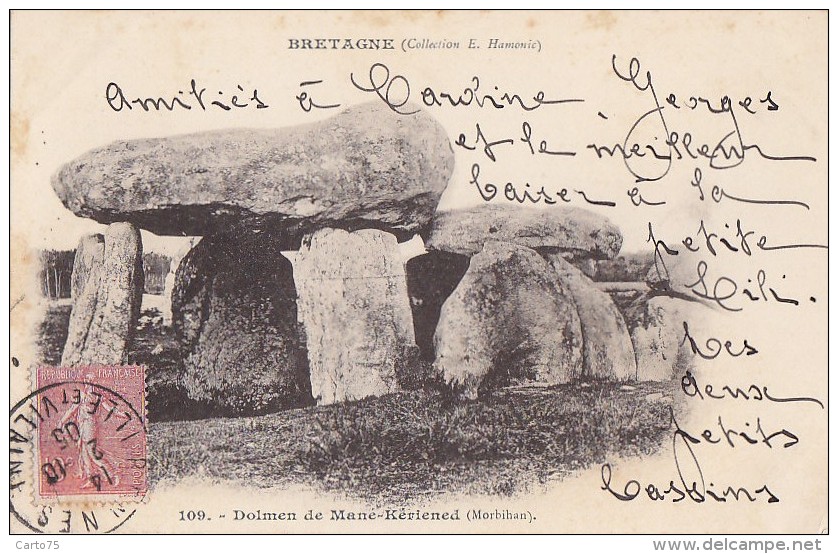 BRETAGNE (Collection E. Hamonic)
Amitiés à Cardine Georges
et le meilleur
baiser à la
petite
Lili.
Les
deux
petits
bassins
REPUBLIQUE FRANÇAISE
ILLE ET VILAINE
109. - Dolmen de Mane-Kériened (Morbihan).
Carto75
www.delcampe.net